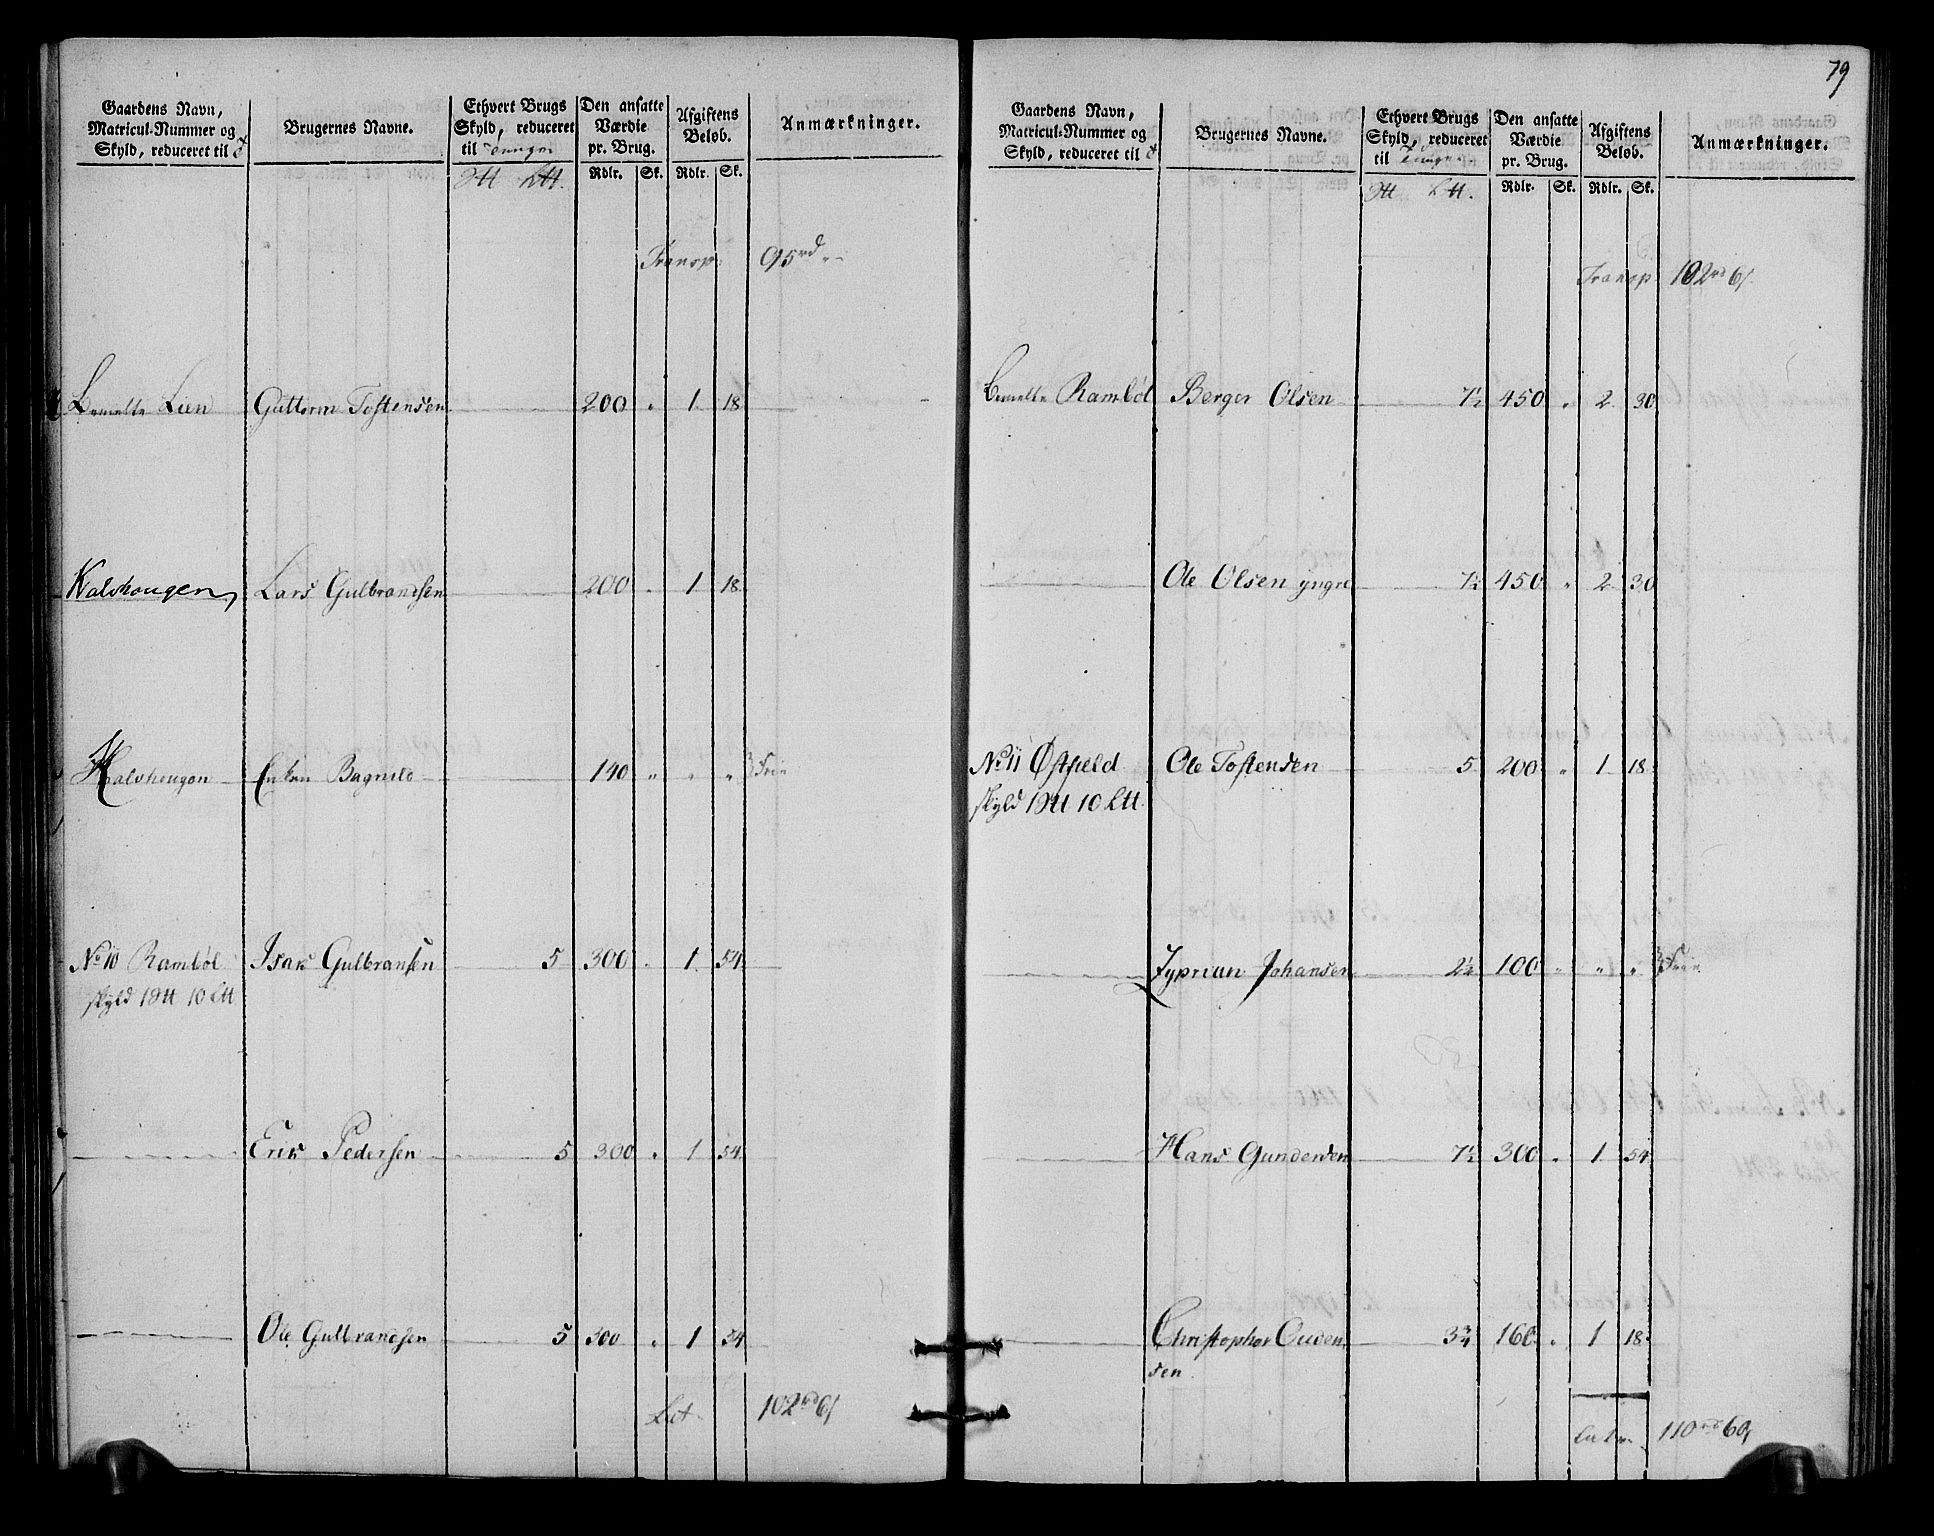 Gaardens Navn, Matricul-Nummer og Skyld, reduceret til | Brugernes Navne. | Ethvert Brugs Skyld, reduceret til Tunge | Den ansatte Værdie pr. Brug. Rdlr. Sk. | Afgiftens Beløb. Rdlr. Sk. | Anmærkninger.
Transp: 95 rd " "
Lien Guttorm Tostensen 200 " 1 18
Kalshougen Lars Gulbrandsen 200 " 1 18
Halvhougen Enken Bagnild 140 " " " Frie
No 10 Rambøl Isak Gulbransen 5 300 " 1 54
skyld 1 10
Erik Pedersen 5 300 " 1 54
Ole Gulbrandsen 5 300 " 1 54
Lat 102 rd 6 s
79
Gaardens Navn, Matricul-Nummer og Skyld, reduceret til | Brugernes Navne. | Ethvert Brugs Skyld, reduceret til Tunge | Den ansatte Værdie pr. Brug. Rdlr. Sk. | Afgiftens Beløb. Rdlr. Sk. | Anmærkninger.
Transp 102 rd 6 s
Rambøl Berger Olsen 7½ 450 " 2 30
Ole Olsen yngre 7½ 450 " 2 30
No 11 Østfield Ole Tostensen 5 200 " 1 18
skyld 1 10
Zyprian Johansen 2½ 100 " " " Frie
Hans Gundersen 7½ 300 " 1 54
Christophor Ouden 3¾ 160 " 1 18
sen
110 rd 60 s